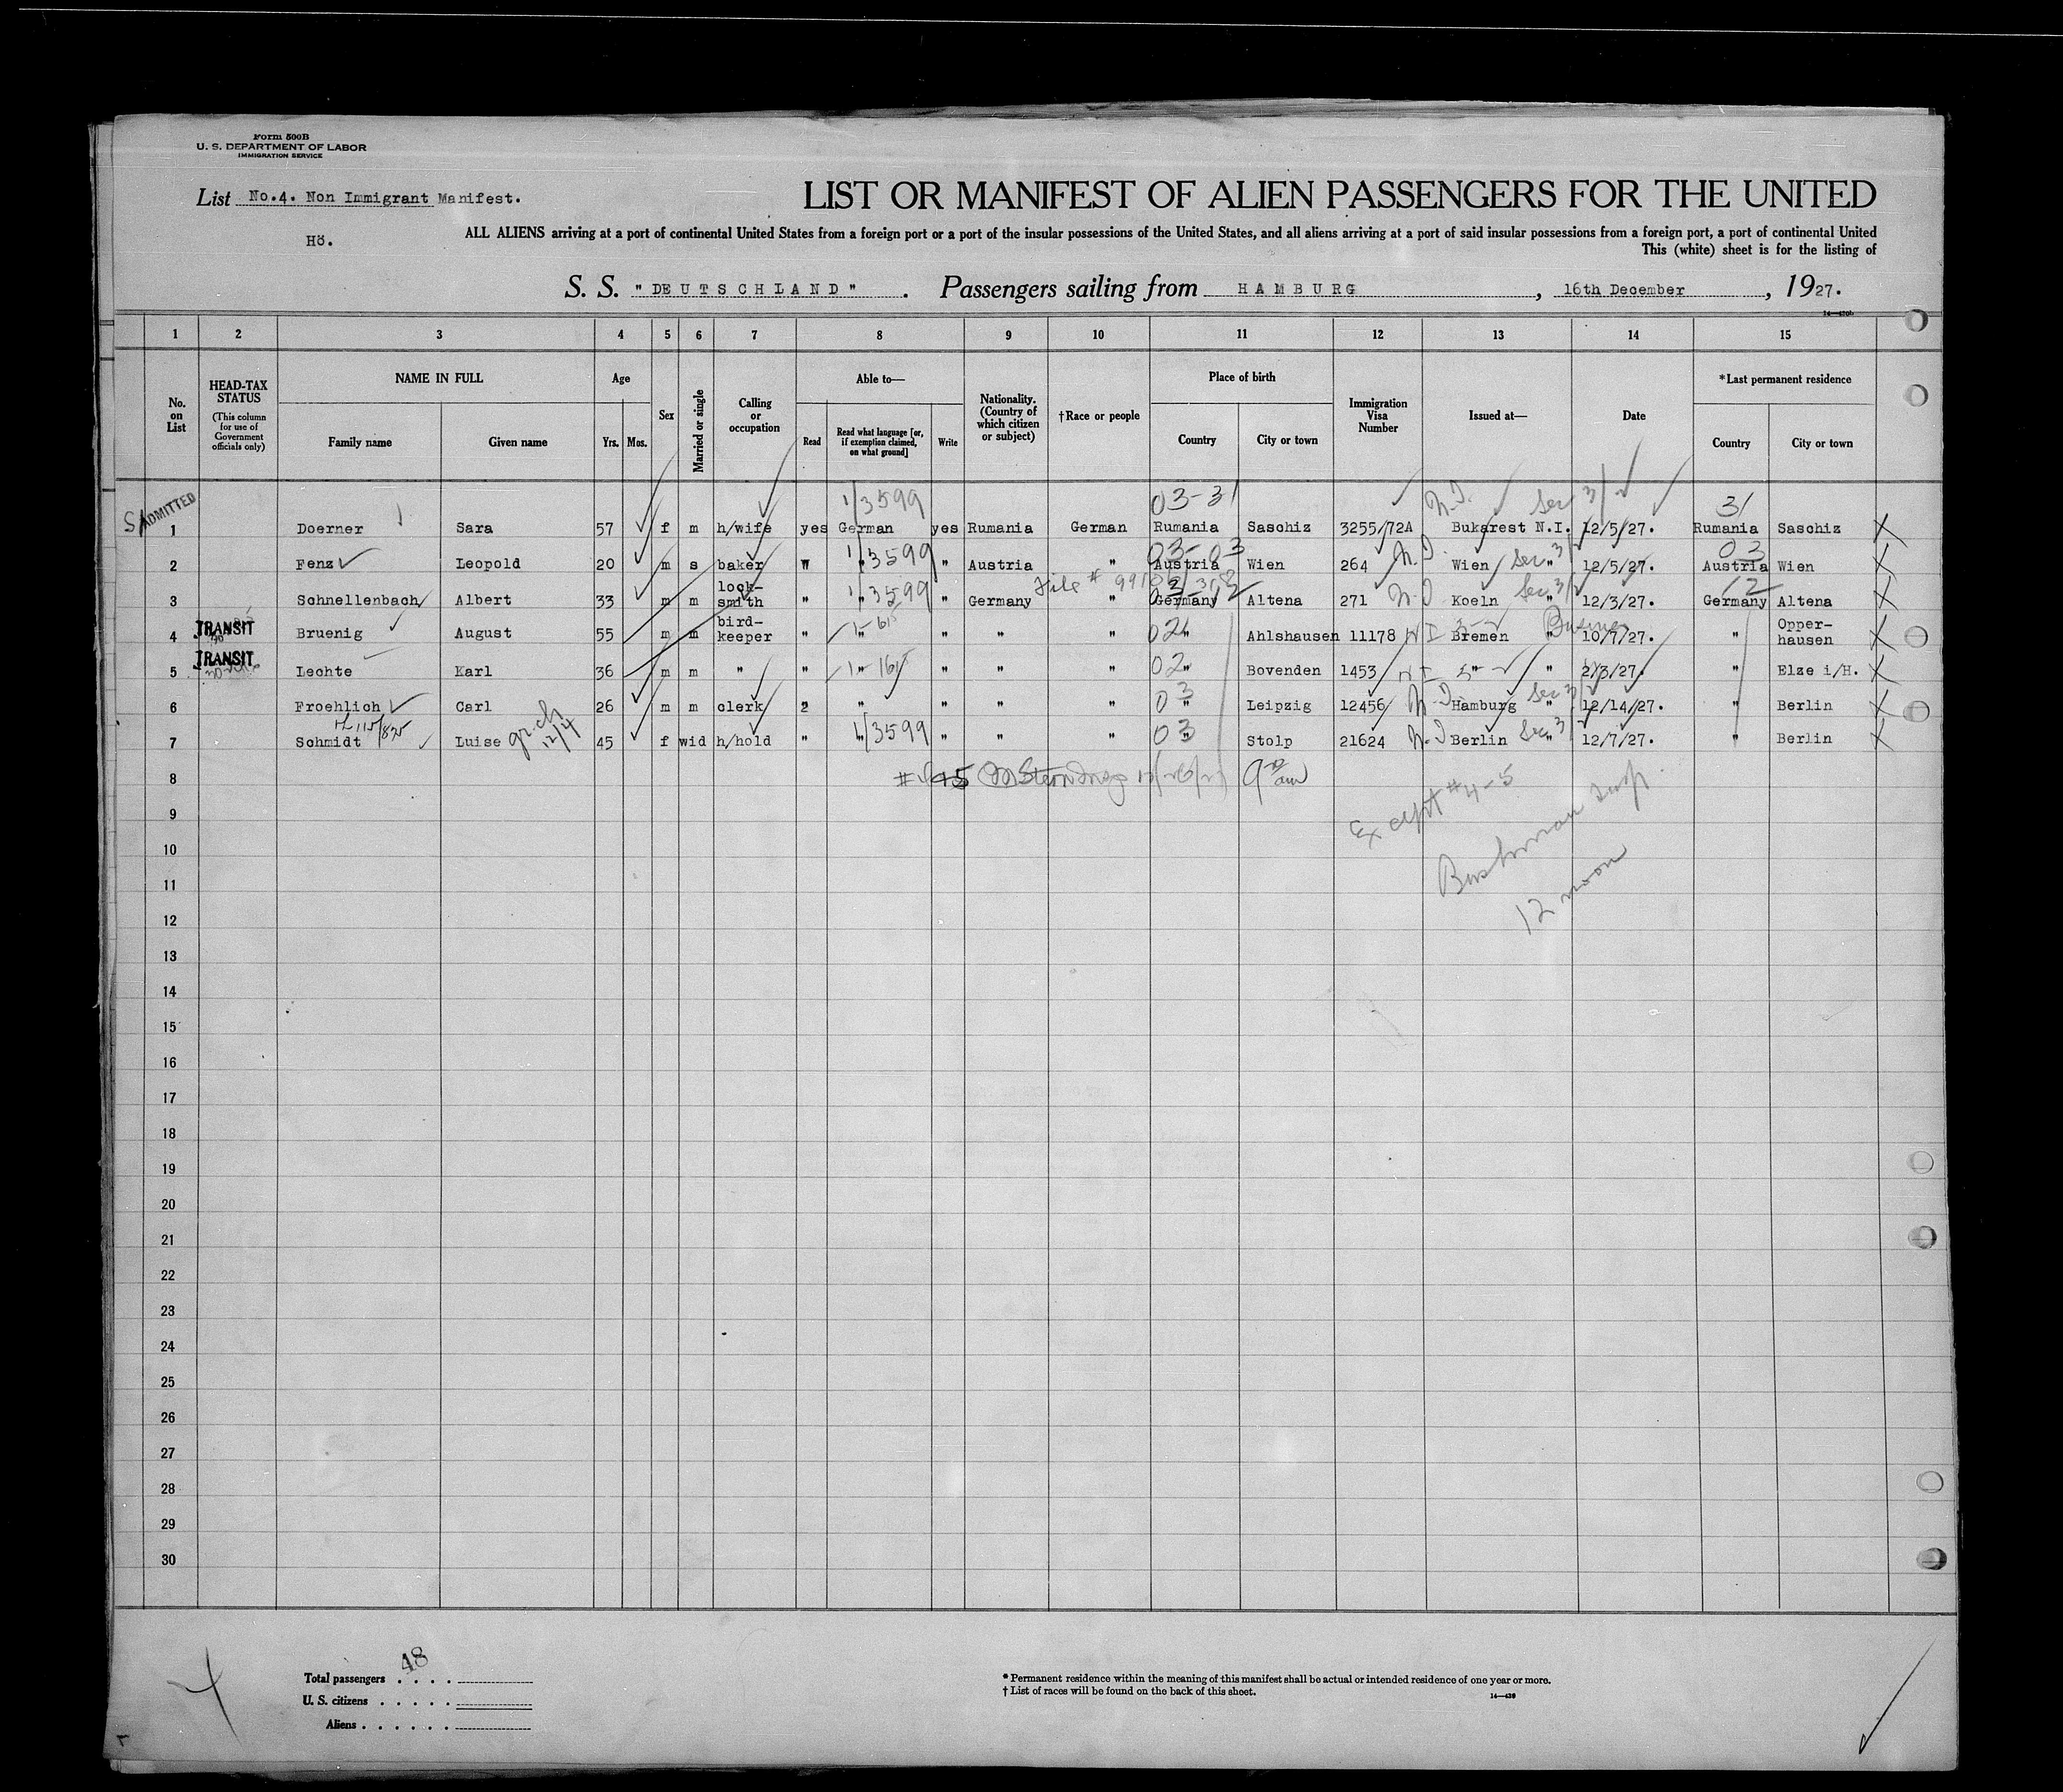 Form 500B
U. S. DEPARTMENT OF LABOR
IMMIGRATION SERVICE
List No.4. Non Immigrant Manifest.
Hö.
LIST OR MANIFEST OF ALIEN PASSENGERS FOR THE UNITED
ALL ALIENS arriving at a port of continental United States from a foreign port or a port of the insular possessions of the United States, and all aliens arriving at a port of said insular possessions from a foreign port, a port of continental United
This (white) sheet is for the listing of
S. S. "DEUTSCHLAND". Passengers sailing from HAMBURG, 16th December, 1927.
1 2 3 4 5 6 7 8 9 10 11 12 13 14 15
No. on List
HEAD-TAX STATUS (This column for use of Government officials only)
NAME IN FULL
Family name Given name
Age
Yrs. Mos.
Sex
Married or single
Calling or occupation
Able to—
Read
Read what language [or, if exemption claimed, on what ground]
Write
Nationality. (Country of which citizen or subject)
†Race or people
Place of birth
Country City or town
Immigration Visa Number
Issued at—
Date
*Last permanent residence
Country City or town
1/3599 03-31 N.I. Sec 3/2 31
ADMITTED 1 Doerner Sara 57 f m h/wife yes German yes Rumania German Rumania Saschiz 3255/72A Bukarest N.I. 12/5/27. Rumania Saschiz X
1/3599 03-03 03
2 Fenz Leopold 20 m s baker W " " Austria " Austria Wien 264 N.I. Wien Sec 3 " 12/5/27. Austria Wien X
1/3599 File # 12
3 Schnellenbach Albert 33 m m lock-smith " " " Germany " Germany Altena 271 N.I. Koeln Sec 3 " 12/3/27. Germany Altena X
TRANSIT 4 Bruenig August 55 m m bird-keeper " " " " " 02 " Ahlshausen 11178 N I Bremen " 10/7/27. " Opper-hausen X
TRANSIT 5 Lechte Karl 36 m m " " " " " " 02 " Bovenden 1453 " " 2/3/27. " Elze i/H. X
6 Froehlich Carl 26 m m clerk 2 " " " " 03 " Leipzig 12456 N.I. Hamburg Sec 3 12/14/27. " Berlin X
7 Schmidt Luise 45 f wid h/hold " " 1/3599 " " " 03 " Stolp 21624 N.I. Berlin Sec 3 " 12/7/27. " Berlin X
12/4
8 9 am
Except #4-5
9
10
11
12 noon
12
13
14
15
16
17
18
19
20
21
22
23
24
25
26
27
28
29
30
48
Total passengers
U. S. citizens
Aliens
* Permanent residence within the meaning of this manifest shall be actual or intended residence of one year or more.
† List of races will be found on the back of this sheet.